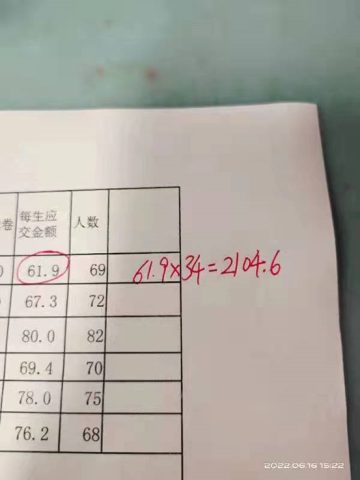 卷 每生应交金额 人数
0 61.9 69 61.9×34=2104.6
67.3 72
80.0 82
69.4 70
78.0 75
76.2 68
2022.06.16 15:22